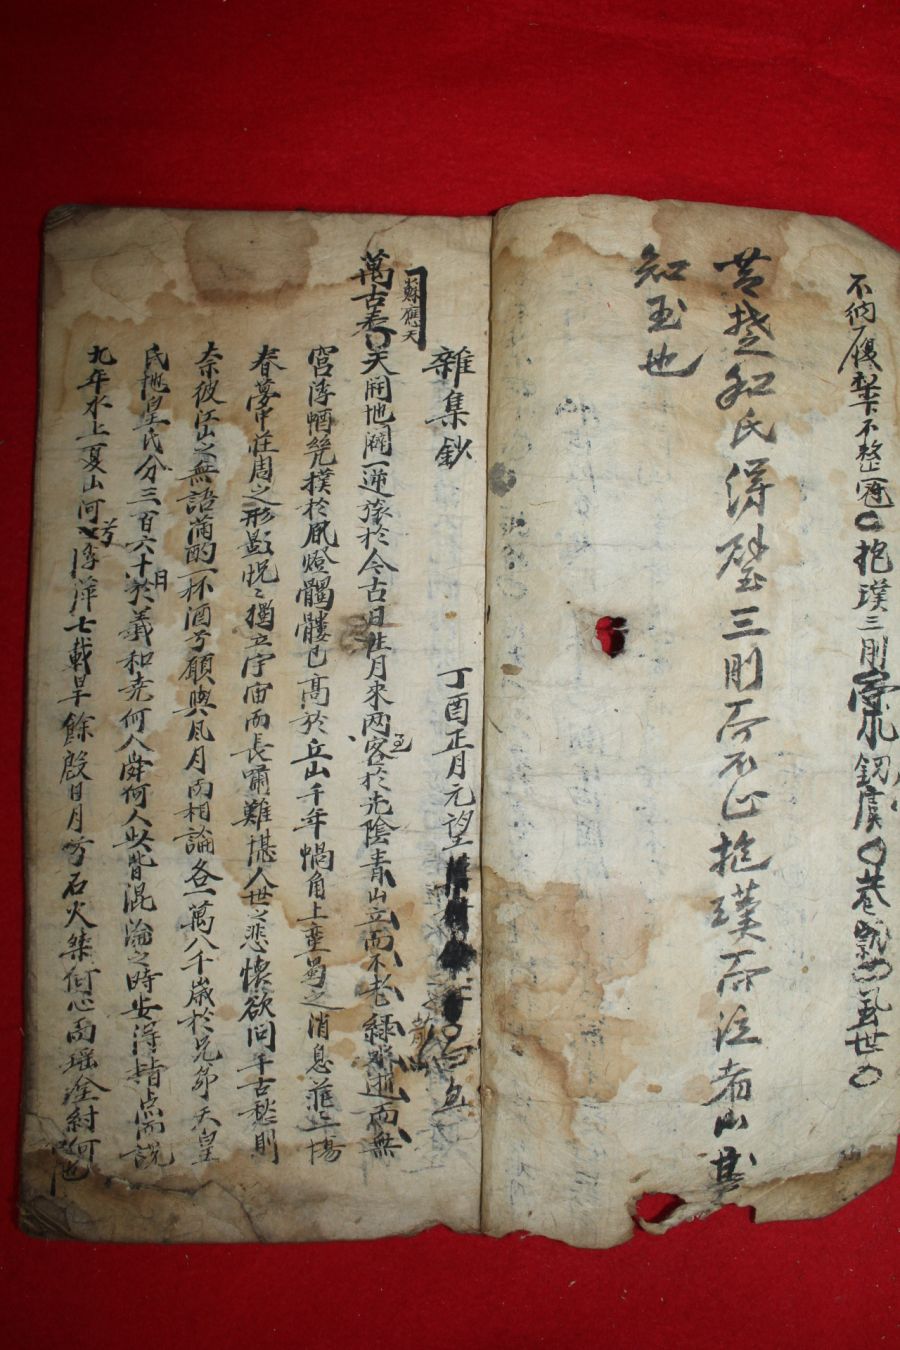 不納履梨下不整冠 抱璞三刖 巷 世
昔楚和氏得璧三刖而不止抱璞而泣者山
知玉也
雜集鈔 丁酉正月元望
蘇應天
萬古春 天開地闢一逆旅於今古日往月來兩客於光陰青山立而不老綠水逝而無
宮浮 於風燈髑髏已高於立山千年蝸角上蠻蜀之消息 一場
春夢中莊周之形影怳怳獨立宇宙而長嘯難堪人世之悲懷欲問千古愁則
奈彼江山之無語滿酌一杯酒兮願與風月而相論各一萬八千歲於兄弟天皇
氏地皇氏分三百六十日於羲和堯何人舜何人 皆混淪之時安得指点而說
九年水上夏山河兮浮萍七載旱餘殷日月兮石火桀何心而瑤 紂何